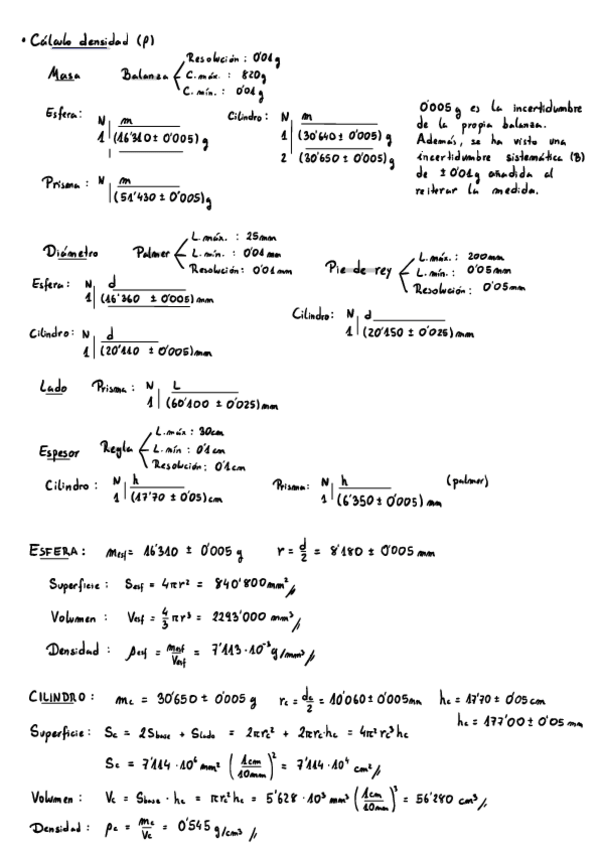 • Cálculo densidad (ρ)
Masa Balanza Resolución : 0'01g
C. máx. : 820g
C. mín. : 0'01g
Esfera: N m
1 (16'310 ± 0'005) g
Cilindro: N m
1 (30'640 ± 0'005) g
2 (30'650 ± 0'005) g
0'005 g es la incertidumbre
de la propia balanza.
Además, se ha visto una
incertidumbre sistemática (B)
de ± 0'01g añadida al
reiterar la medida.
Prisma: N m
1 (51'430 ± 0'005) g
Diámetro Palmer L. máx. : 25mm
L. mín. : 0'01 mm
Resolución : 0'01 mm
Pie de rey L. máx. : 200mm
L. mín. : 0'05mm
Resolución : 0'05mm
Esfera: N d
1 (16'360 ± 0'005) mm
Cilindro: N d
1 (20'150 ± 0'025) mm
Cilindro: N d
1 (20'110 ± 0'005) mm
Lado Prisma: N L
1 (60'100 ± 0'025) mm
Espesor Regla L. máx : 30cm
L. mín : 0'1 cm
Resolución : 0'1 cm
Cilindro : N h
1 (17'70 ± 0'05) cm
Prisma: N h (palmer)
1 (6'350 ± 0'005) mm
ESFERA: m_esf = 16'310 ± 0'005 g r = d/2 = 8'180 ± 0'005 mm
Superficie : S_esf = 4πr² = 840'800 mm² //
Volumen : V_esf = 4/3 πr³ = 2293'000 mm³ //
Densidad : ρ_esf = m_esf/V_esf = 7'113 · 10⁻³ g/mm³ //
CILINDRO: m_c = 30'650 ± 0'005 g r_c = d_c/2 = 10'060 ± 0'005mm h_c = 17'70 ± 0'05 cm
h_c = 177'00 ± 0'05 mm
Superficie: S_c = 2S_base + S_lado = 2πr_c² + 2πr_c h_c = 4π²r_c³h_c
S_c = 7'114 · 10⁶ mm² (1cm/10mm)² = 7'114 · 10⁴ cm² //
Volumen: V_c = S_base · h_c = πr_c²h_c = 5'628 · 10⁴ mm³ (1cm/10mm)³ = 56'280 cm³ //
Densidad: ρ_c = m_c/V_c = 0'545 g/cm³ //